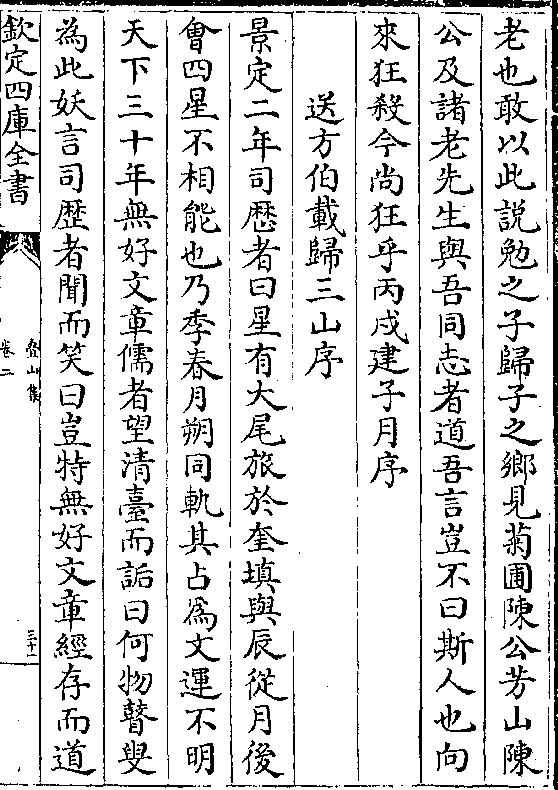 老也敢以此説勉之子歸子之鄉見菊圃陳公芳山陳
公及諸老先生與吾同志者道吾言豈不曰斯人也向
來狂殺今尚狂乎丙戌建子月序
送方伯載歸三山序
景定二年司歴者曰星有大尾旅於奎填與辰從月後
㑹四星不相能也乃季春月朔同軌其占為文運不明
天下三十年無好文章儒者望清臺而詬曰何物瞽叟
為此妖言司歴者聞而笑曰豈特無好文章經存而道
欽定四庫全書
疊山集
卷二
三十二